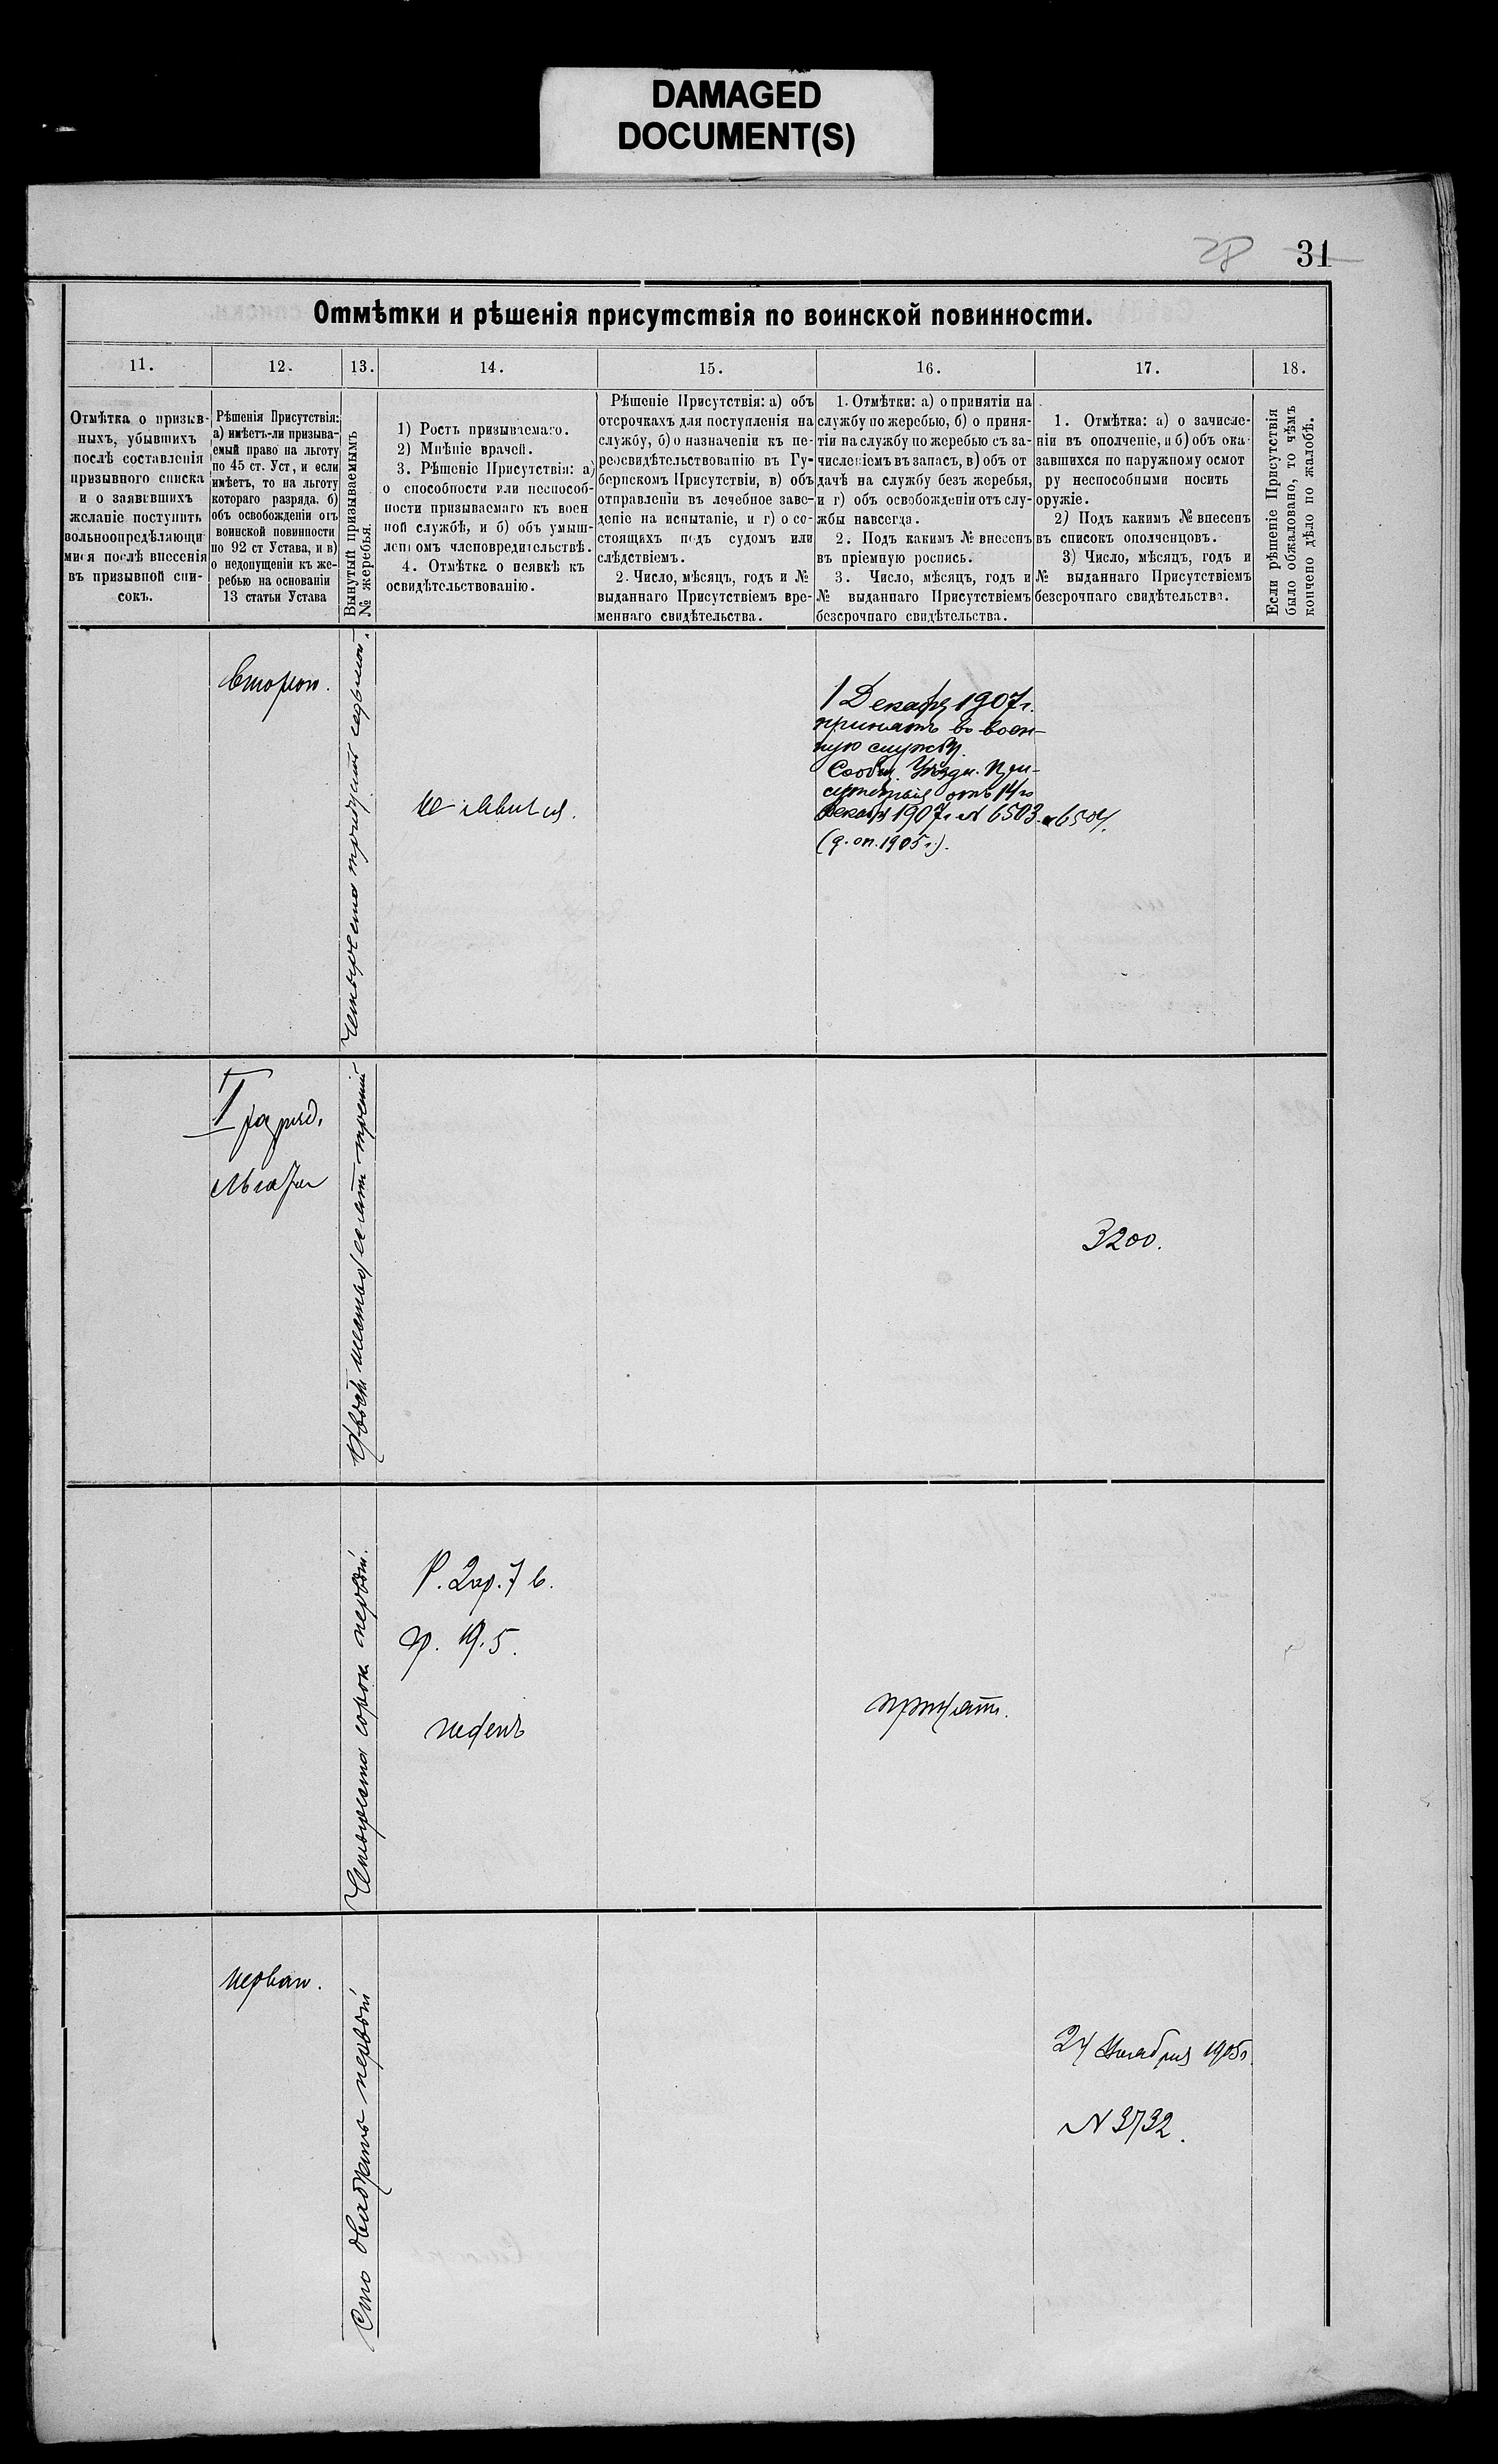 DAMAGED
DOCUMENT(S)
28 31
Отмѣтки и рѣшенія присутствія по воинской повинности.
11. 12. 13. 14. 15. 16. 17. 18.
Отмѣтка о призыв-
ныхъ, убывшихъ
послѣ составленія
призывного списка
и о заявившихъ
желаніе поступить
вольноопредѣляющи
мися послѣ внесенія
въ призывной спи-
сокъ.
Рѣшенія Присутствія:
а) имѣетъ-ли призыва-
емый право на льготу
по 45 ст. Уст, и если
имѣетъ, то на льготу
котораго разряда. б)
объ освобожденіи отъ
воинской повинности
по 92 ст Устава, и в)
о недопущеніи къ же-
ребью на основаніи
13 статьи Устава
Вынутый призываемымъ
№ жеребья.
1) Ростъ призываемаго.
2) Мнѣніе врачей.
3. Рѣшеніе Присутствія: а)
о способности или неспособ-
ности призываемаго къ воен
ной службѣ, и б) объ умыш-
леномъ членовредительствѣ.
4. Отмѣтка о неявкѣ къ
освидѣтельствованію.
Рѣшеніе Присутствія: а) объ
отсрочкахъ для поступленія на
службу, б) о назначеніи къ пе-
реосвидѣтельствованію въ Гу-
бернскомъ Присутствіи, в) объ
отправленіи въ лечебное заве-
деніе на испытаніе, и г) о со-
стоящихъ подъ судомъ или
слѣдствіемъ.
2. Число, мѣсяцъ, годъ и №
выданнаго Присутствіемъ вре-
меннаго свидѣтельства.
1. Отмѣтки: а) о принятіи на
службу по жеребью, б) о приня-
тіи на службу по жеребью съ за-
численіемъ въ запасъ, в) объ от
дачѣ на службу безъ жеребья,
и г) объ освобожденіи отъ слу-
жбы навсегда.
2. Подъ какимъ № внесенъ
въ пріемную роспись.
3. Число, мѣсяцъ, годъ и
№ выданнаго Присутствіемъ
безсрочнаго свидѣтельства.
1. Отмѣтка: а) о зачисле-
ніи въ ополченіе, и б) объ ока-
завшихся по наружному осмот
ру неспособными носить
оружіе.
2) Подъ какимъ № внесенъ
въ списокъ ополченцовъ.
3) Число, мѣсяцъ, годъ и
№ выданнаго Присутствіемъ
безсрочнаго свидѣтельства.
Если рѣшеніе Присутствія
было обжаловано, то чѣмъ
кончено дѣло по жалобѣ.
второй.
Четыреста тридцать седьмой.
не явился.
1 Декабря 1907 г.
принятъ в воен-
ную службу.
Сообщ. Уѣздн. При-
сутствія отъ 14го
Декабря 1907 г. № 6503 и 6504.
(д. оп. 1905 г.).
I разряд.
льгота
Двѣсти шестьдесятъ третій
3200.
Четыреста сорокъ первый.
Р. 2 ар. 7 в.
годенъ
принятъ.
первый.
Сто двадцать первый
24 Ноября 1905 г.
№ 3732.